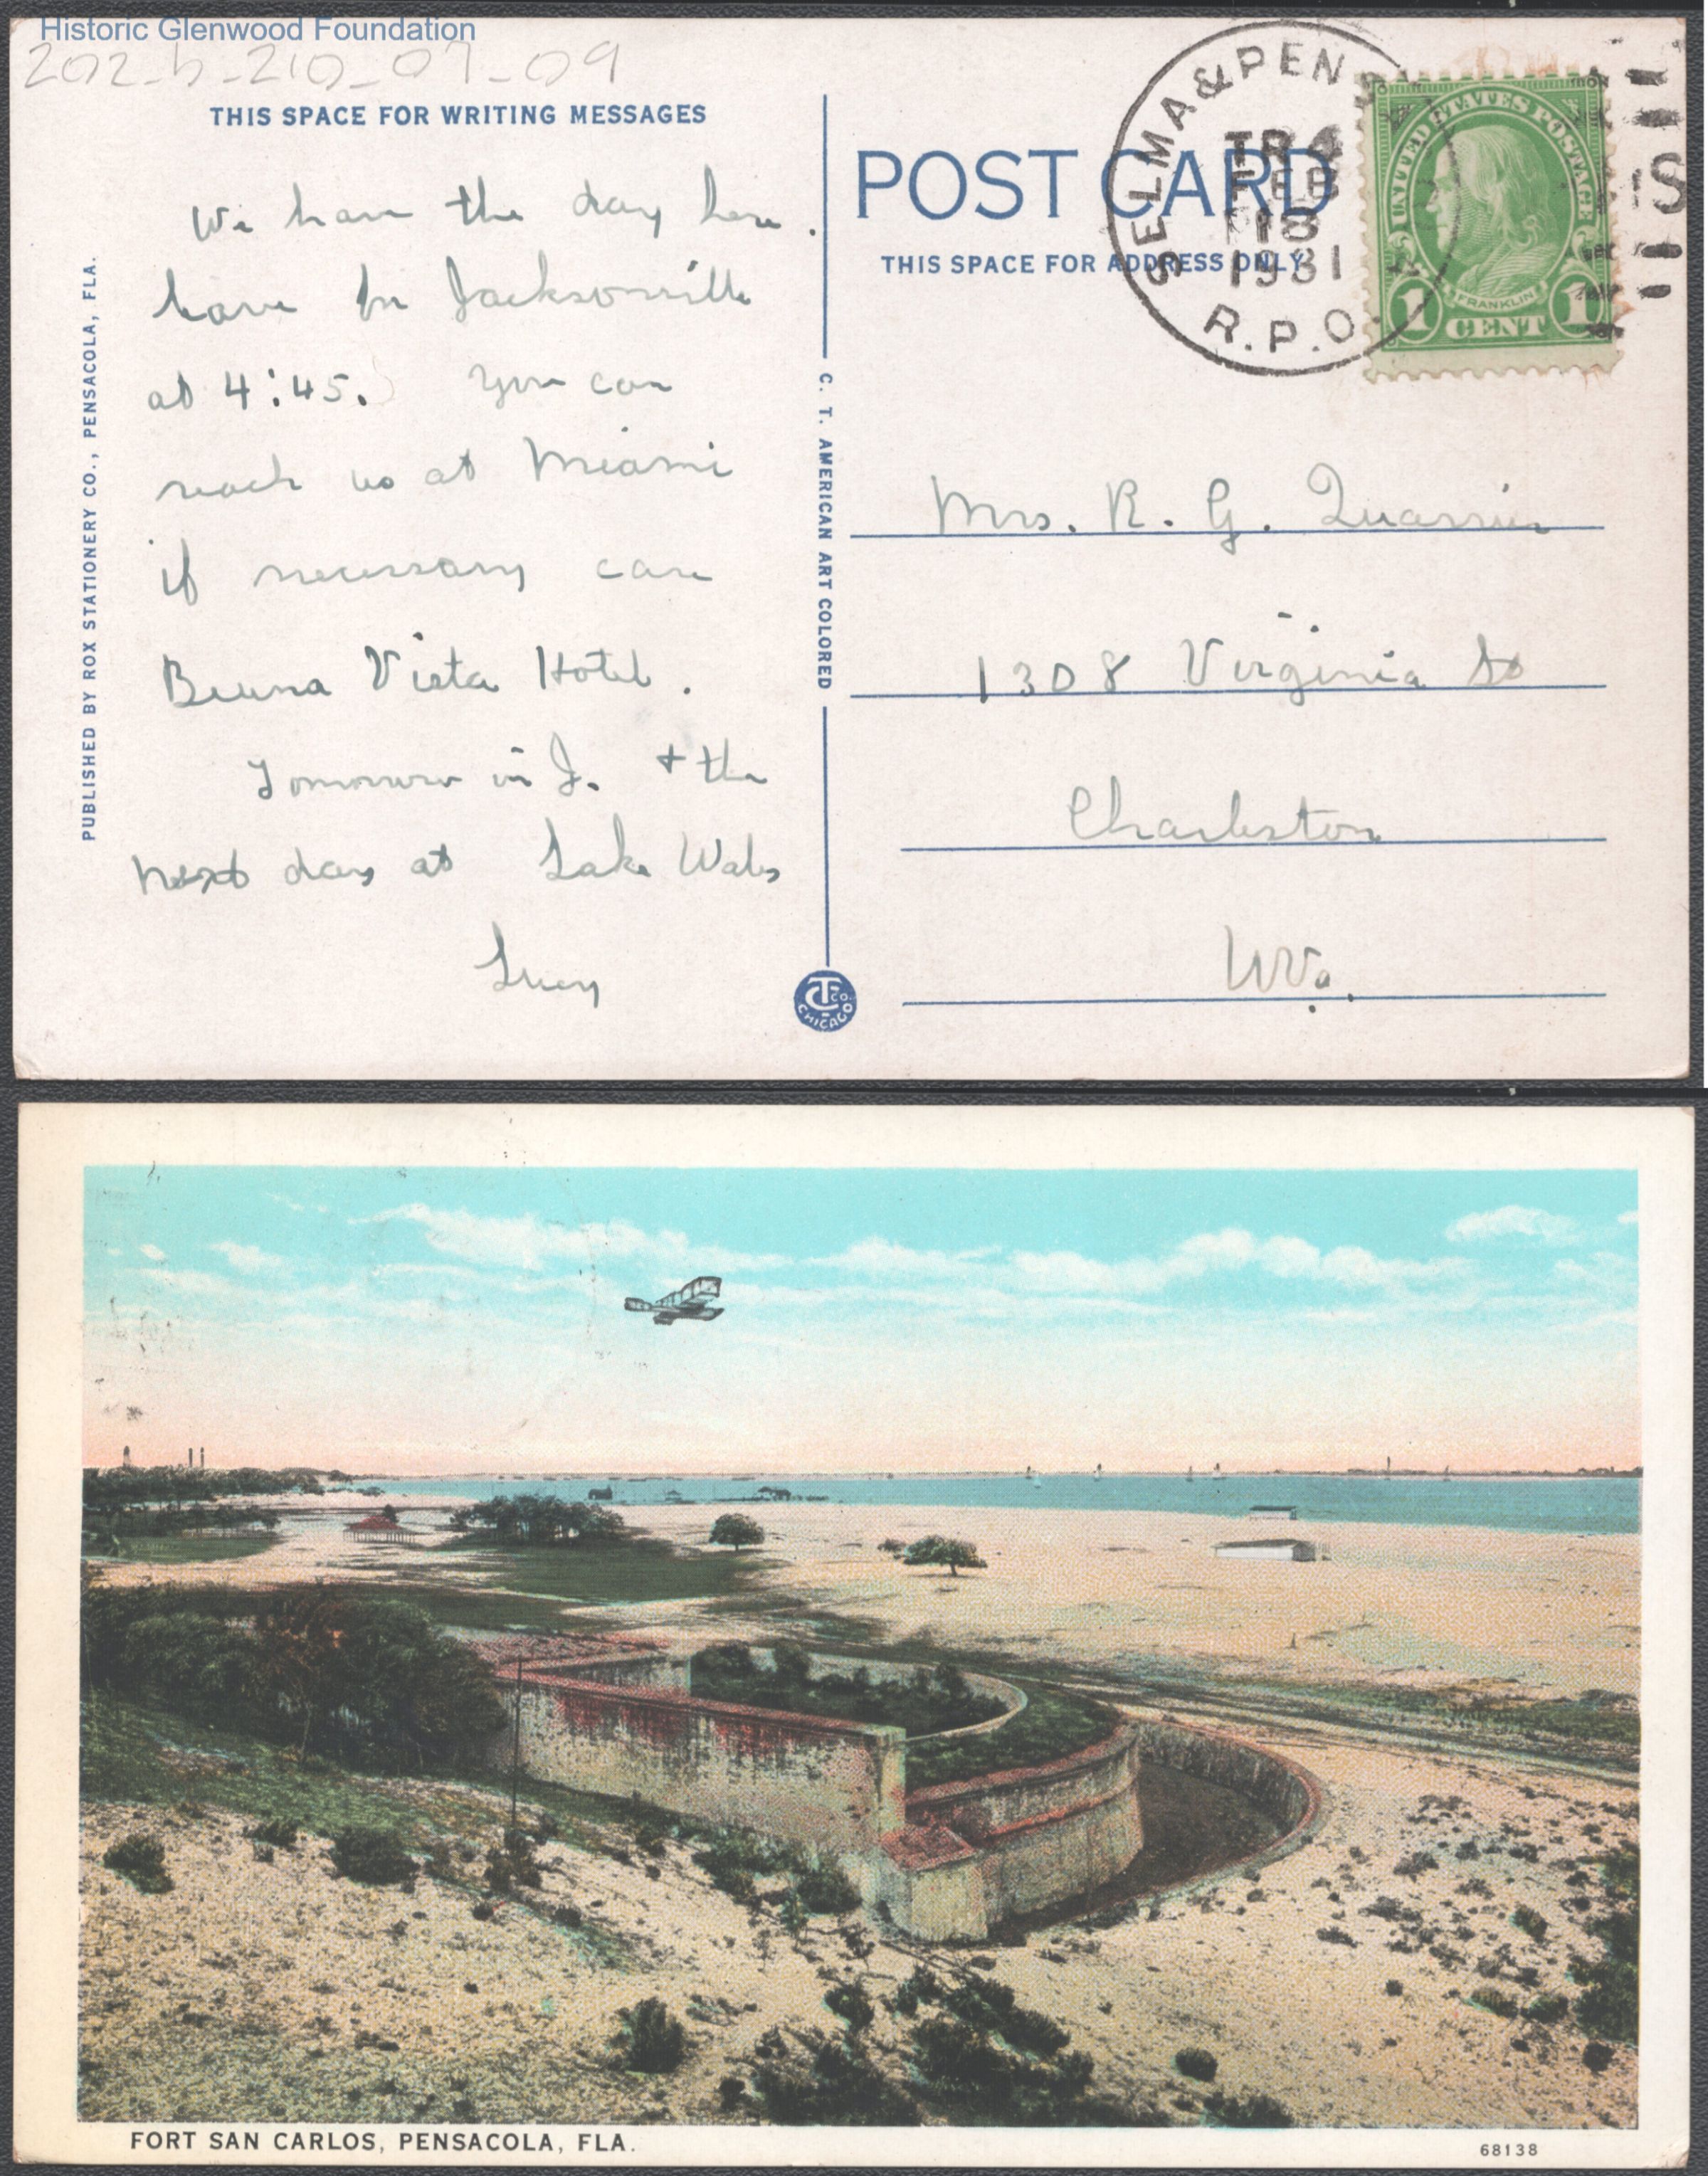 Historic Glenwood Foundation
202_b_210_07_09
THIS SPACE FOR WRITING MESSAGES
We have the day here.
leave for Jacksonville
at 4:45. You can
reach us at Miami
if necessary care
Beuna Vista Hotel.
Tomorrow in J. + the
next day at Lake Wales
Lucy
PUBLISHED BY ROX STATIONERY CO., PENSACOLA, FLA.
C. T. AMERICAN ART COLORED
C.T. CO. CHICAGO
POST CARD
THIS SPACE FOR ADDRESS ONLY
SELMA & PENS
TR 4
FEB
18
1931
R.P.O.
UNITED STATES POSTAGE
FRANKLIN
1 CENT 1
Mrs. R. G. Quarrier
1308 Virginia St
Charleston
W.Va.
FORT SAN CARLOS, PENSACOLA, FLA.
68138